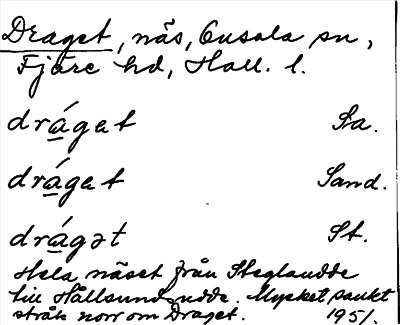 Draget, näs, Onsala sn,
Fjäre hd, Hall. l.
drágat Sa.
drágat Sand.
drágət St.
Hela näset från Steglaudde
till Hållsundsudde. Mycket sankt
stråk norr om Draget. 1951.